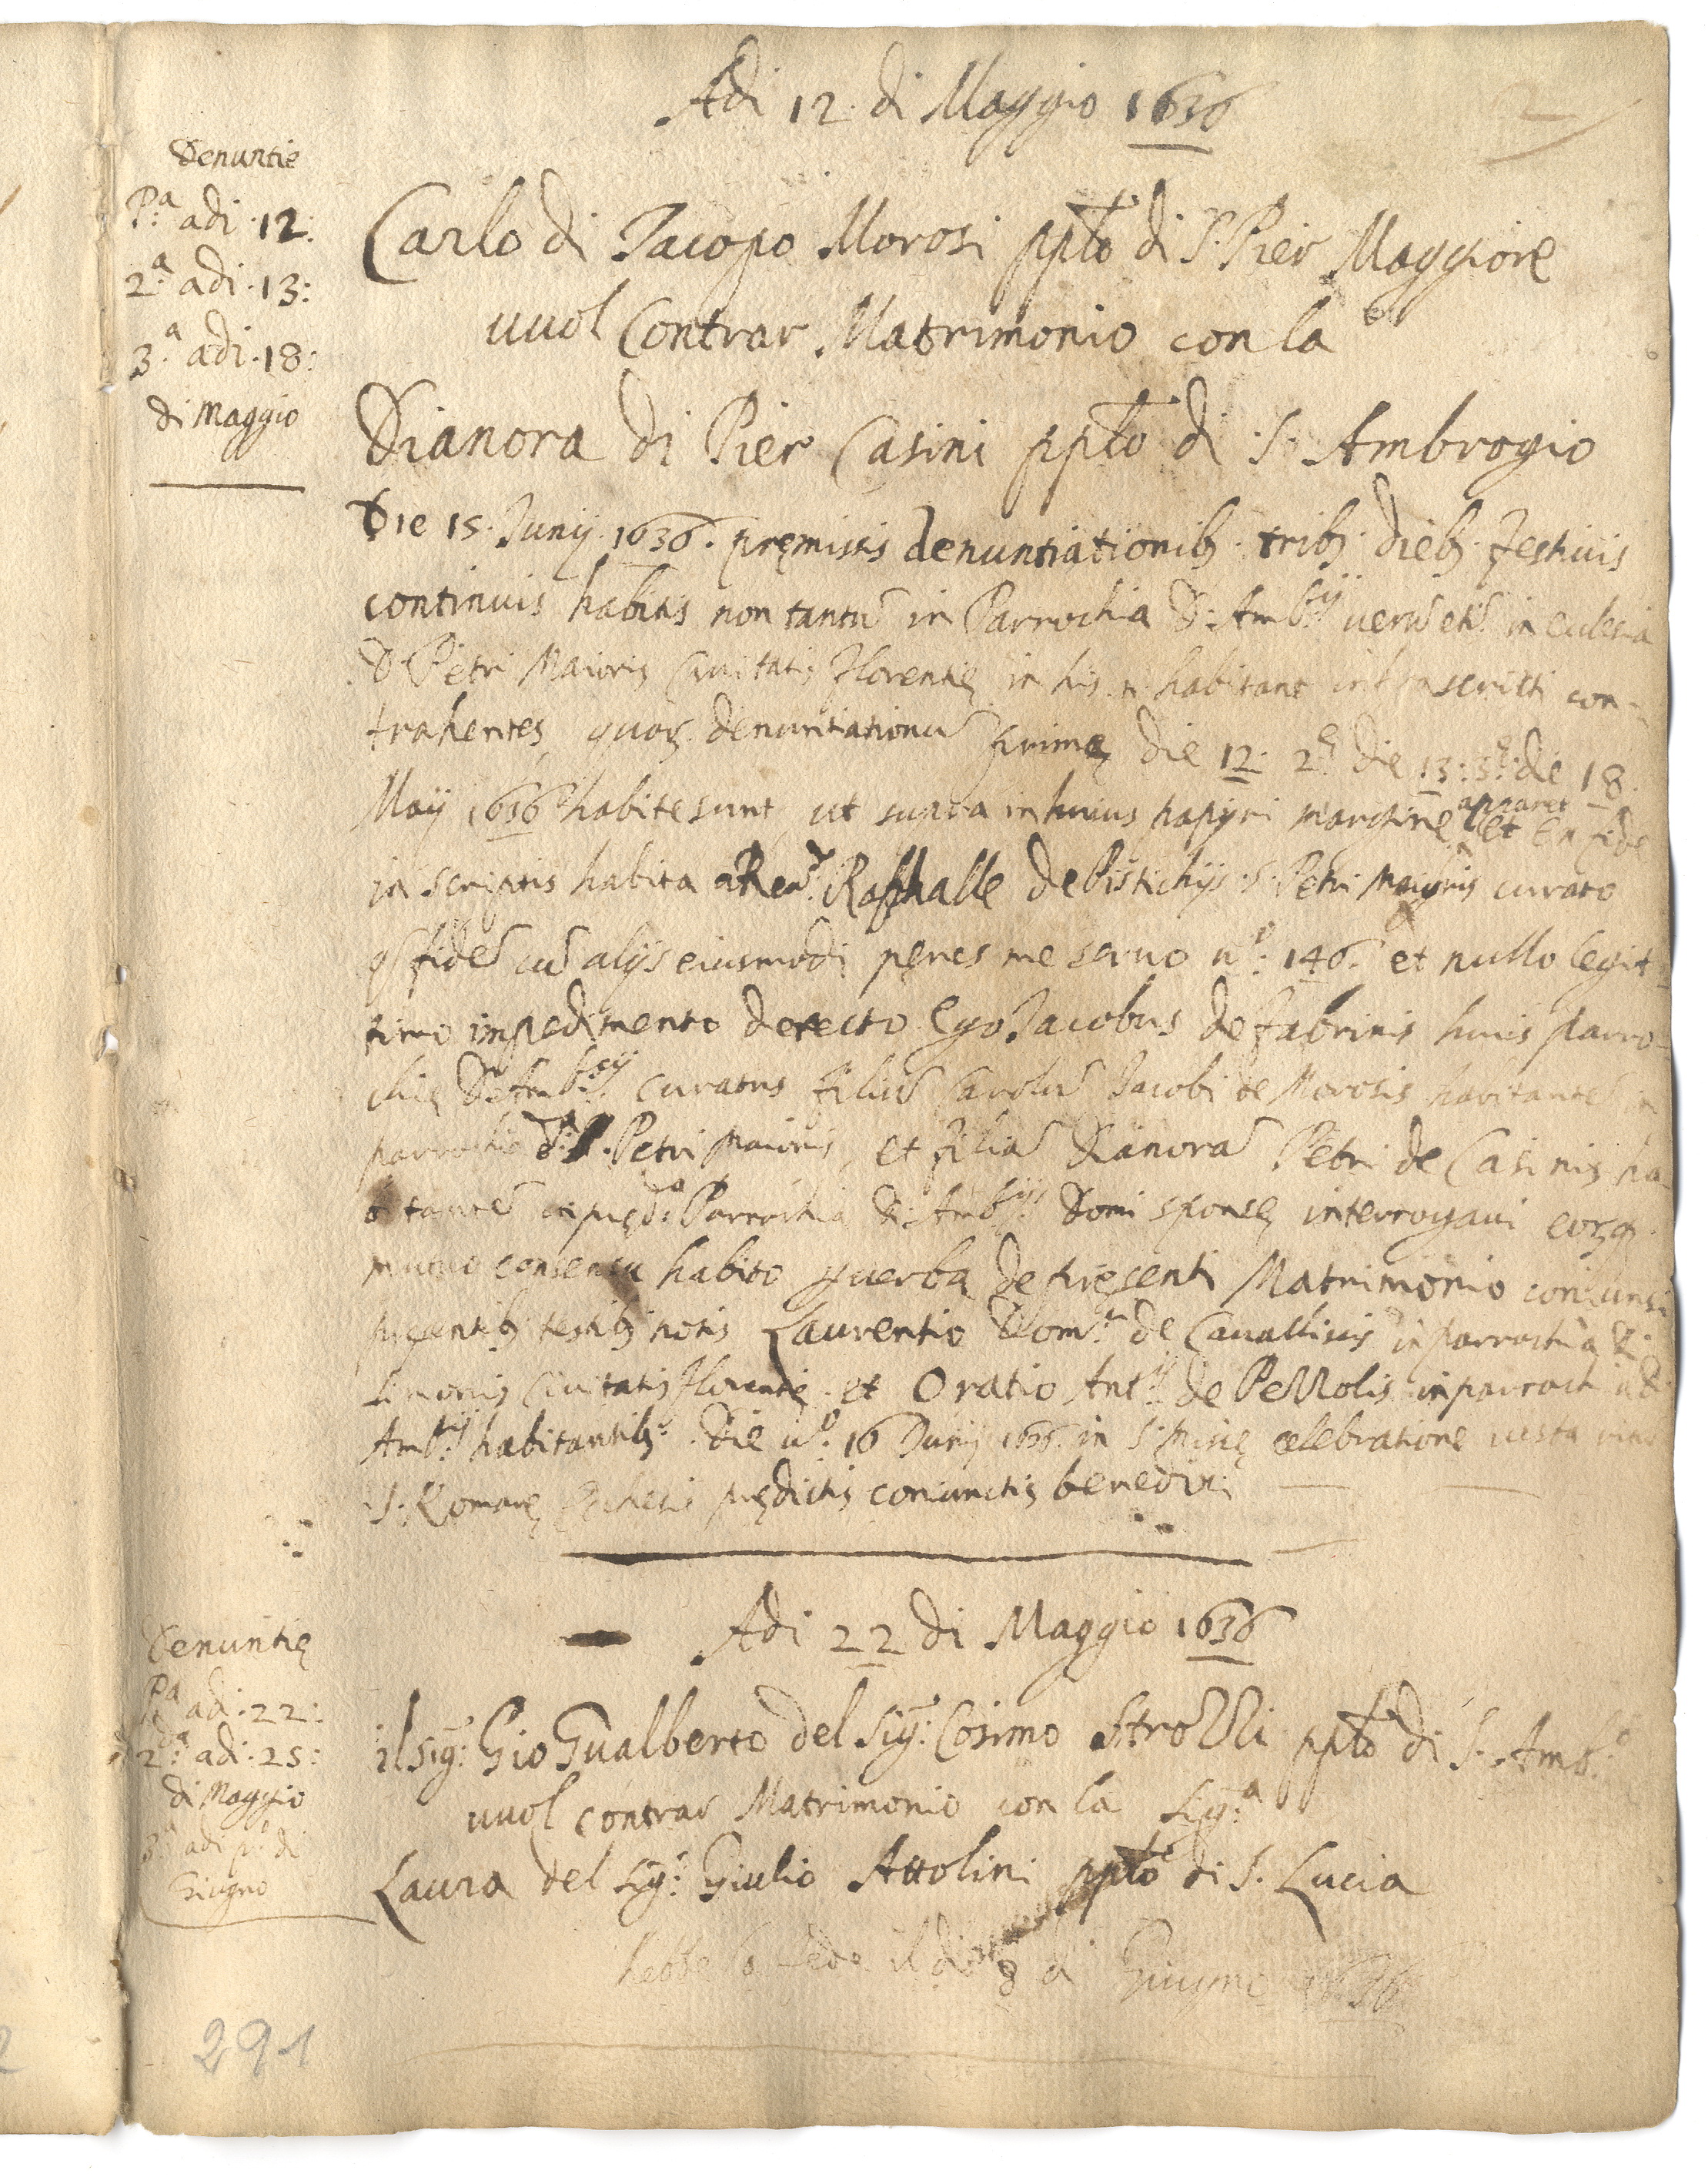 Adi 12 di Maggio 1636
2
Denuntie
P.ª adi 12:
2.ª adi 13:
3.ª adi 18:
di Maggio
Carlo di Jacopo Morosi pplo di S. Pier Maggiore
vuol Contrar Matrimonio con la
Dianora di Pier Casini pplo di S. Ambrogio
Die 15 Junij 1636. premissis denuntiationib trib dieb festivis
continuis habitis non tantū in Parrochia D: Amb.sij verū etiā in eclesia
D Petri Maioris Civitatis Florentie in his habitant infrascritti con-
trahentes, quor denuntiationū prime die 12. 2.e die 13: 3.e die 18.
Maij 1636 habite sunt, ut supra in huius papyri margine apparet et fide
in scriptis habita a Re.do Raffhalle de Pistichijs S. Petri Maioris curato
q fidē cū alijs eiusmodi penes me servo n.o: 146. et nullo legit-
timo impedimento detecto Ego Jacobus de fabrinis huius parro-
chie D Amb.sij curatus filiū Carolū Jacobi de Morosis habitantē in
parrochia D. Petri Maioris, et filiā Dianorā Petri de Casinis ha-
bitantē in pred.a Parrochia D: Amb.sij Domi sponse interrogavi eorq
mutuo consensu habito p verba de presenti Matrimonio coniunsi
presentib testib notis Laurentio Dom.ci de Cavallinis in parrochia D.
Simonis Civitatis Florentie et Oratio Ant.ij de Pezzolis in parrochia D:
Amb.sij habitantib. Die v.o: 16 Junij 1636 in S. Misse celebratione iusta ritū
S. Romane Ecclesie predictis coniunctis benedixi
Denuntie
P.ª adi 22:
2.ª adi 25:
di Maggio
3.ª adi p.o di
Giugno
Adi 22 di Maggio 1636
il Sig.r: Gio Gualberto del Sig.r: Cosimo Strozzi pplo di S. Amb.o
vuol contrar Matrimonio con la Sig.ª
Laura del Sig.r: Giulio Attolini pplo di S. Lucia
hebbe la fede il dì 8 di Giugno 1636
291